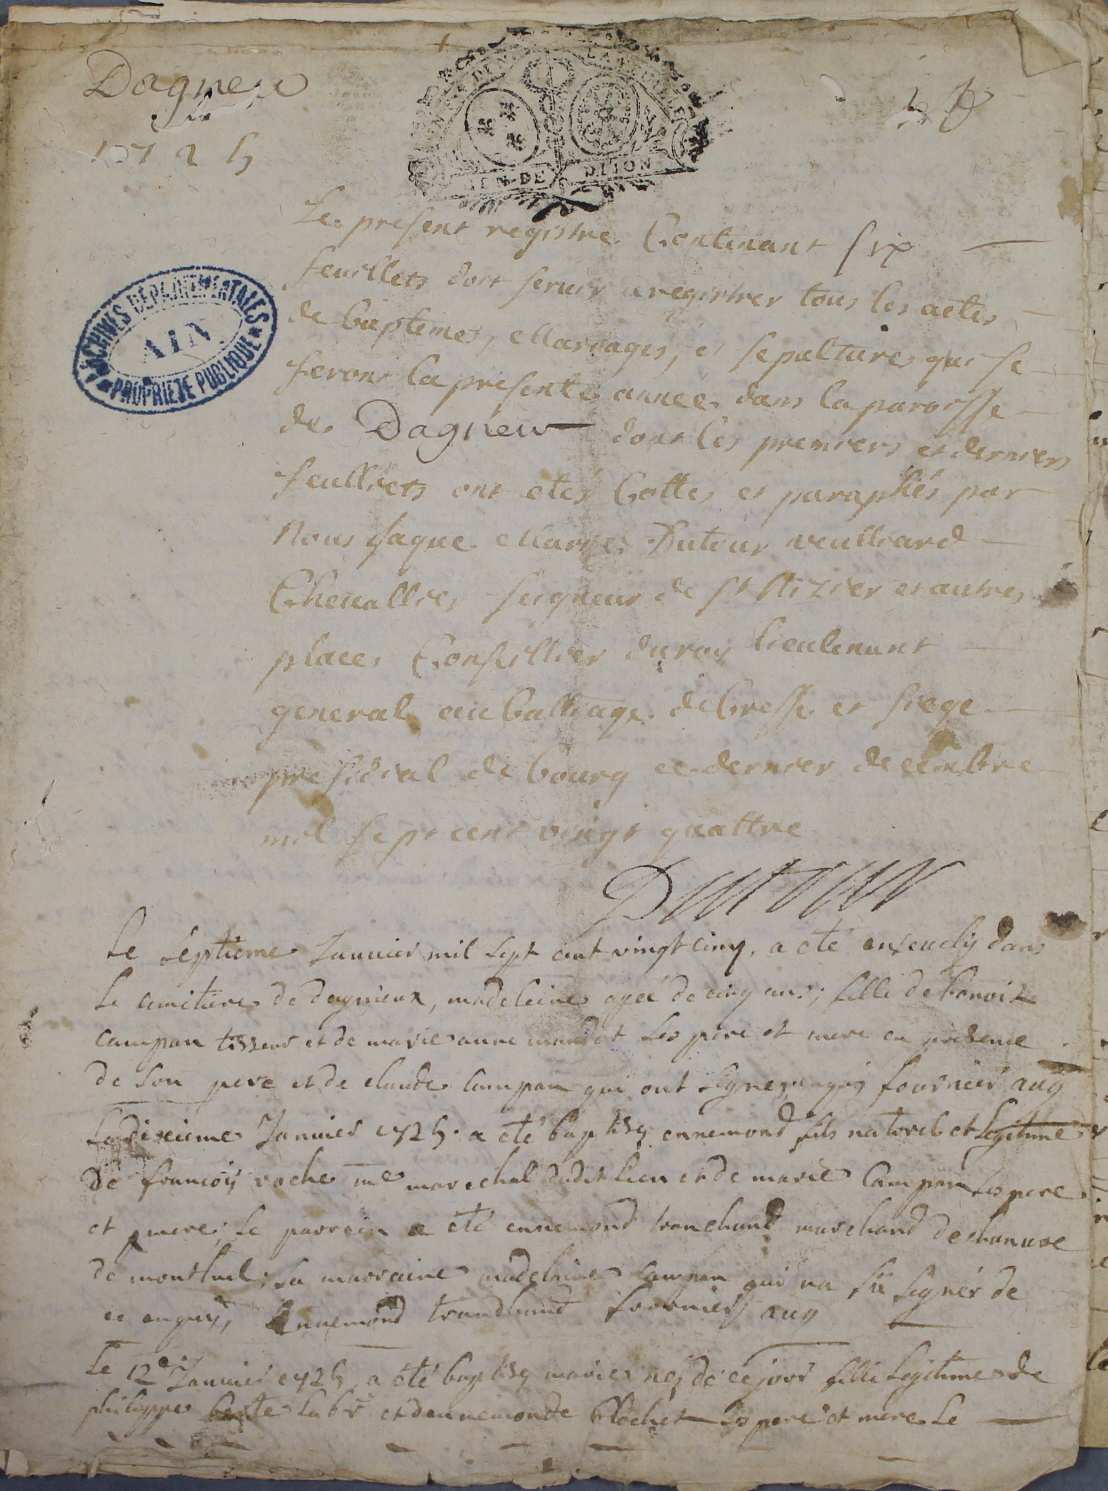 Dagneu
1725
GEN. DE DIJON
ARCHIVES DEPARTEMENTALES
AIN
PROPRIETE PUBLIQUE
Le present registre Contenant six
feuillets dort servir a registrer tous les actes
de baptemes, Mariages, et sepultures qui se
feront la presente annee dans la paroisse
de Dagneu dont les premiers et derniers
feuillets ont etés Cottes et paraphés par
Nous Jaque Marie Dutour veulliard
Chevallier seigneur de St Nizier et autres
places Conseillier du roy lieutenant
general au balliage de bresse et siege
presidial de bourg ce dernier decembre
mil sept cent vingt quattre
Dutour
Le septieme Janvier mil sept cent vingt cinq, a eté ensevely dans
le cimitiere de dagnieux, madeleine ageé de cinq ans, fille de benoit
campan tisseur et de marie anne ses pere et mere en presence
de son pere et de claude campan qui ont signes fournier
Le dixieme Janvier 1725 a eté baptisé ennemond fils naturel et legitime
De francois roche me marechal dudit lieu et de marie campan ses pere
et mere; le parrein a eté ennemond tranchand marchand
de montluel; la marraine madelaine campan qui na sü signer de
ce enquis, Annemond tranchand fournier
Le 12e Janvier 1725, a eté baptisé marie neé de ce jour fille legitime de
philippe labr et dennemonde Blochet ses pere et mere le